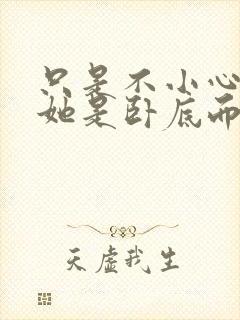 只是不小心
她是卧底而
天虚我生